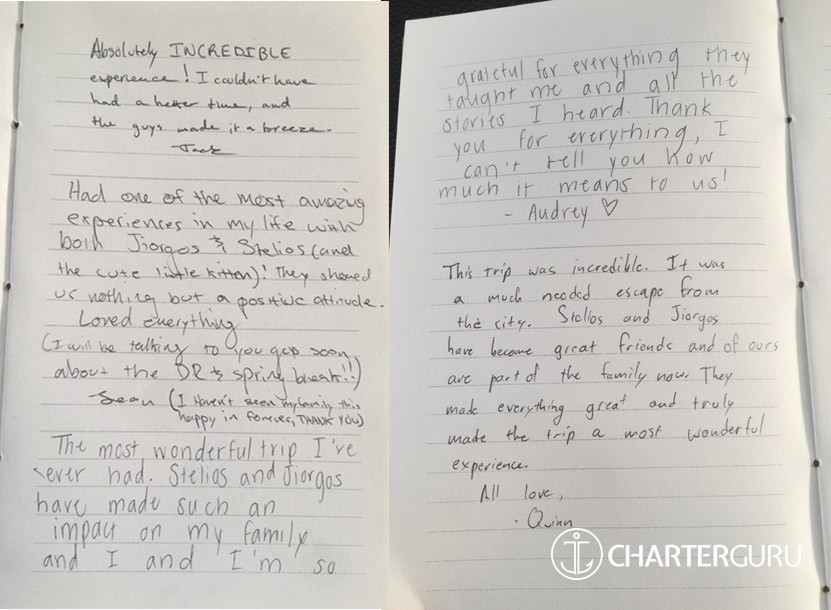 Absolutely INCREDIBLE
experience! I couldn't have
had a better time, and
the guys made it a breeze.
- Jack
Had one of the most amazing
experiences in my life with
both Jiorgos & Stelios (and
the cute little kitten)! They showed
us nothing but a positive attitude.
Loved everything
(I will be talking to you guys soon
about the DR & spring break!!)
- Sean (I Haven't seen my family this
happy in forever, THANK YOU)
The most wonderful trip I've
ever had. Stelios and Jiorgos
have made such an
impact on my family
and I and I'm so
grateful for everything they
taught me and all the
stories I heard. Thank
you for everything, I
can't tell you how
much it means to us!
- Audrey ♡
This trip was incredible. It was
a much needed escape from
the city. Stelios and Jiorgos
have become great friends and of ours
are part of the family now. They
made everything great and truly
made the trip a most wonderful
experience.
All love,
- Quinn
CHARTERGURU